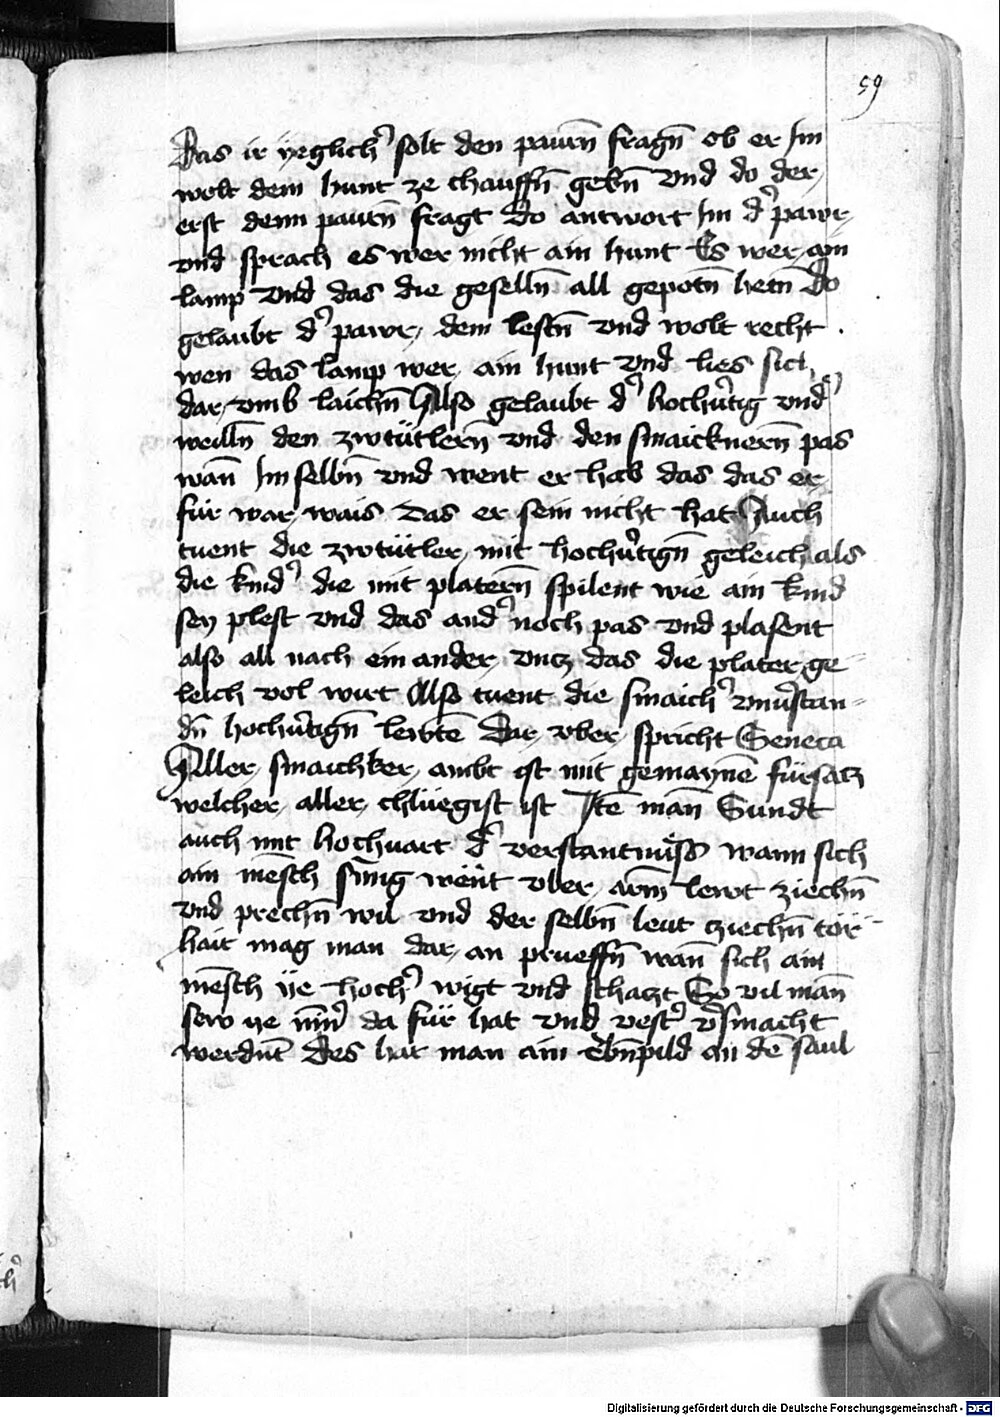 59
Das ir yeglichʼ solt den paurn̄ fragn̄ ob er Im
wolt dem hunt ze chauffn̄ gebn̄ vnd do der
erst denn paurn̄ fragt Do antwort Im dʼ pawr
vnd sprach es wer nicht ain hunt Es wer ain
lamp vnd das die geselln̄ all gepotn̄ hetn̄ Do
gelaubt dʼ pawr dem lestn̄ vnd wolt recht
wen das lamp wer ain hunt vnd lies sich
dar vmb laichn̄ Also gelaubt dʼ hochuʼtig vnd
weilln̄ den zwtütlern̄ vnd den smaicknern̄ pas
wan̄ Im selbn̄ vnd went er hab das das er
für war wais das er sein nicht hat Auch
tuent die zwtütler mit hochuʼtign̄ geleich als
die kindʼ die mit platern̄ spilent wie ain kind
sey plest vnd das andʼ noch pas vnd plasent
also all nach ein ander vncz das die plater ge
leich vol wirt Also tuent die smaichʼ vnuʼstan
dn̄ hochuʼtign̄ lewtē Dar vber spricht Seneca
Aller smaichker ambt ist mit gemaynē fürsacz
welcher aller chlüegist ist Itē man̄ Sundt
auch mit hochuart dʼ verstantnüsß wann sich
ain mēsch sīnig went vber arm̄ lewt ziechn̄
vnd prechn̄ wil vnd der selbn̄ leut cziechn̄ tör
hait mag man dar an prueffn̄ wan̄ sich ain
mēsch ye hochʼ wigt vnd schaczt So vil man̄
sew ye mīnʼ da für hat vnd vestʼ vʼsmacht
werdnt Des hat man ain Ebn̄pild an dē saul
Digitalisierung gefördert durch die Deutsche Forschungsgemeinschaft - DFG